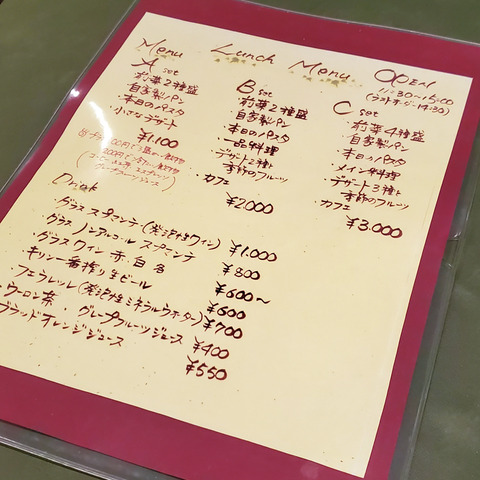 Menu Lunch Menu
11:30~15:00
(ラストオーダー14:30)
A set
・前菜2種盛
・自家製パン
・本日のパスタ
・小さなデザート
¥1.100
B set
・前菜2種盛
・自家製パン
・本日のパスタ
・一品料理
・デザート2種と
季節のフルーツ
・カフェ
¥2.000
C set
・前菜4種盛
・自家製パン
・本日のパスタ
・メイン料理
・デザート3種と
季節のフルーツ
・カフェ
¥3.000
Drink
・グラス スプマンテ(発泡性ワイン) ¥1.000
・グラス ノンアルコール スプマンテ ¥800
・グラスワイン 赤・白 各 ¥600～
・キリン一番搾り生ビール ¥600
・フェラレッレ(発泡性ミネラルウォーター) ¥700
・ウーロン茶・グレープフルーツジュース ¥400
ブラッドオレンジジュース ¥550